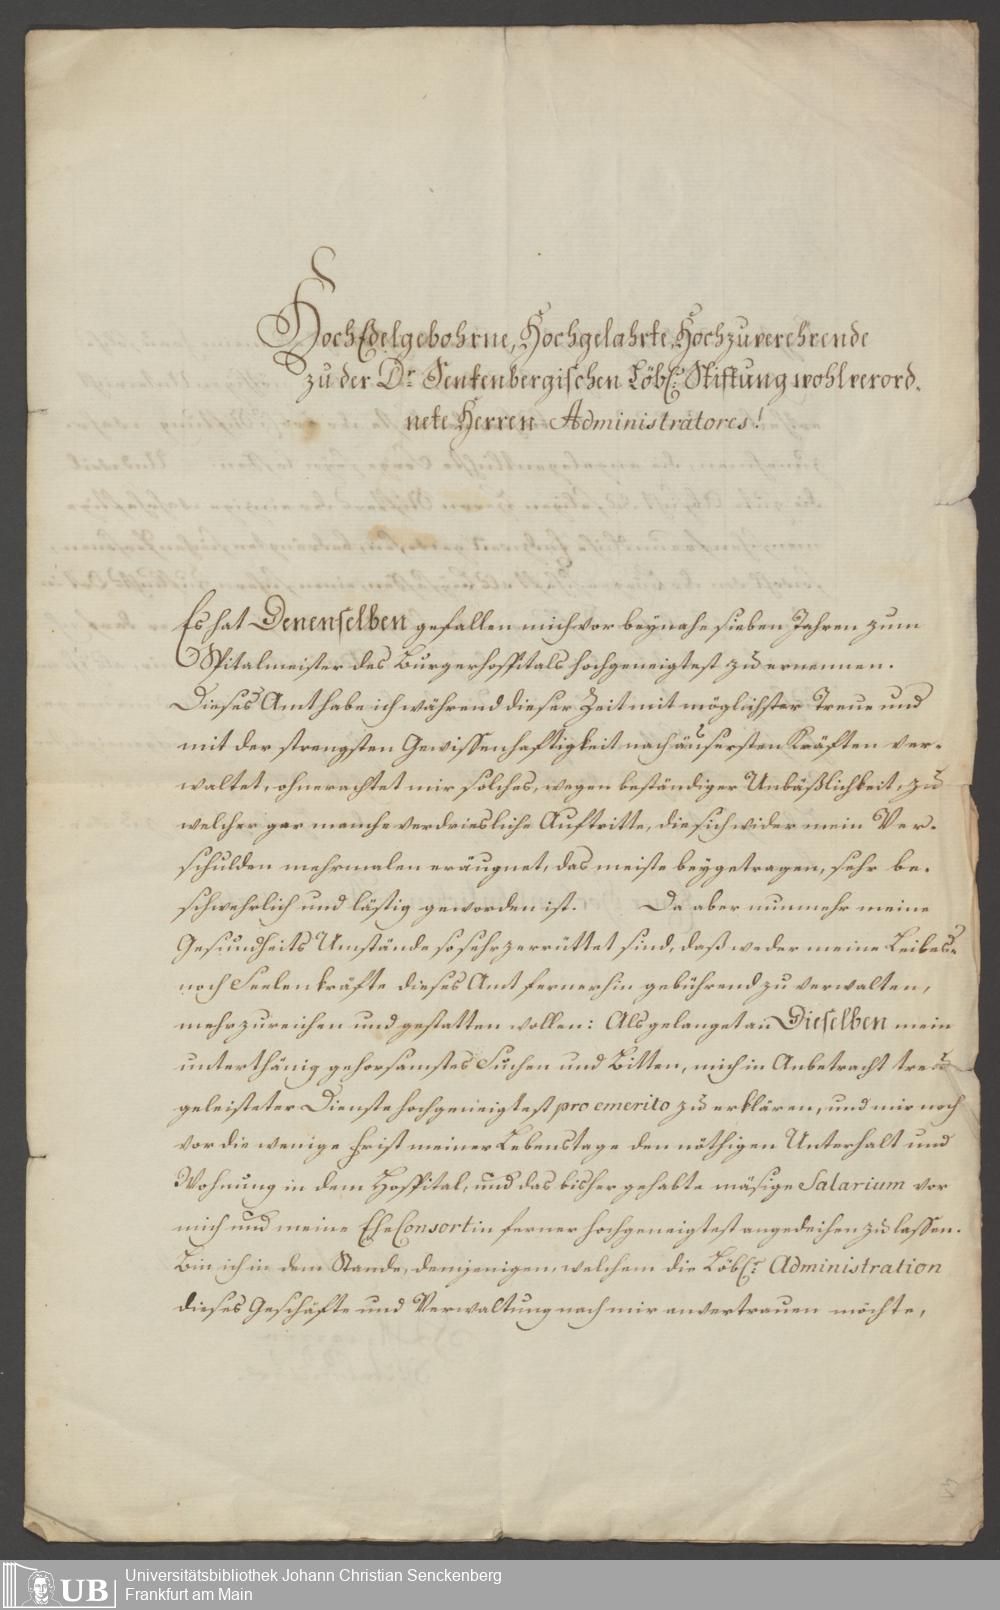 HochEdelgebohrne, Hochgelahrte, Hochzuverehrende
zu der Dr. Senkenbergischen Löbl: Stiftung wohlverord.
nete Herren Administratores!
Es hat Denenselben gefallen mich vor beynahe sieben Jahren zum
Spitalmeister des Burgerhospitals hochgeneigtest zu ernennen.
Dieses Amt habe ich während dieser Zeit mit möglichster Treue und
mit der strengsten Gewissenhaftigkeit nach äusersten Kräften ver-
waltet, ohnerachtet mir solches, wegen beständiger Unbäßlichkeit, zu
welcher gar manche verdriesliche Auftritte, die sich wider mein Ver-
schulden mehrmalen eräugnet, das meiste beygetragen, sehr be-
schwehrlich und lästig geworden ist. Da aber nunmehr meine
Gesundheits Umstände so sehr zerrüttet sind, daß weder meine Leibes-
noch Seelenkräfte dieses Amt fernerhin gebührend zu verwalten,
mehr zureichen und gestatten wollen: Als gelanget an Dieselben mein
unterthänig gehorsamstes Suchen und Bitten, mich in Anbetracht treu
geleisteter Dienste hochgeneigtest pro emerito zu erklären, und mir noch
vor die wenige Frist meiner Lebenstage den nöthigen Unterhalt und
Wohnung in dem Hospital, und das bisher gehabte mäsige Salarium vor
mich und meine EheConsortin ferner hochgeneigtest angedeihen zu lassen.
Bin ich in dem Stande, demjenigen, welchem die Löbl: Administration
dieses Geschäfte und Verwaltung nach mir anvertrauen möchte,
UB
Universitätsbibliothek Johann Christian Senckenberg
Frankfurt am Main